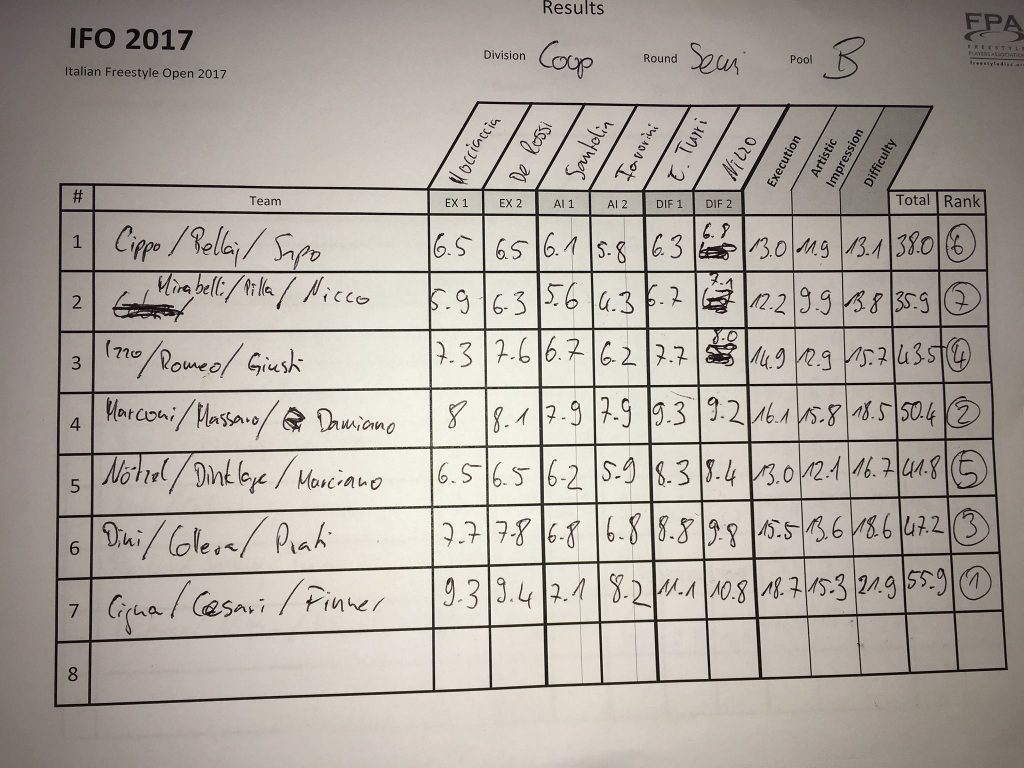 Results
IFO 2017
Italian Freestyle Open 2017
Division Coop Round Semi Pool B
FPA
FREESTYLE
PLAYERS ASSOCIATION
freestyledisc.org
De Rossi Santolin Favorini E. Turri Nizzo Execution Artistic Impression Difficulty
# Team EX 1 EX 2 AI 1 AI 2 DIF 1 DIF 2 Total Rank
1 Cippo / Bellaj / Sapo 6.5 6.5 6.1 5.8 6.3 6.8 13.0 11.9 13.1 38.0 6
2 Mirabelli / Pilla / Nicco 5.9 6.3 5.6 4.3 6.7 7.1 12.2 9.9 13.8 35.9 7
3 Izzo / Romeo / Giusti 7.3 7.6 6.7 6.2 7.7 8.0 14.9 12.9 15.7 43.5 4
4 Marconi / Massaro / Damiano 8 8.1 7.9 7.9 9.3 9.2 16.1 15.8 18.5 50.4 2
5 Nötzel / Dinklage / Marciano 6.5 6.5 6.2 5.9 8.3 8.4 13.0 12.1 16.7 41.8 5
6 Dini / Collera / Prati 7.7 7.8 6.8 6.8 8.8 9.8 15.5 13.6 18.6 47.2 3
7 Cigna / Cesari / Finner 9.3 9.4 7.1 8.2 11.1 10.8 18.7 15.3 21.9 55.9 1
8